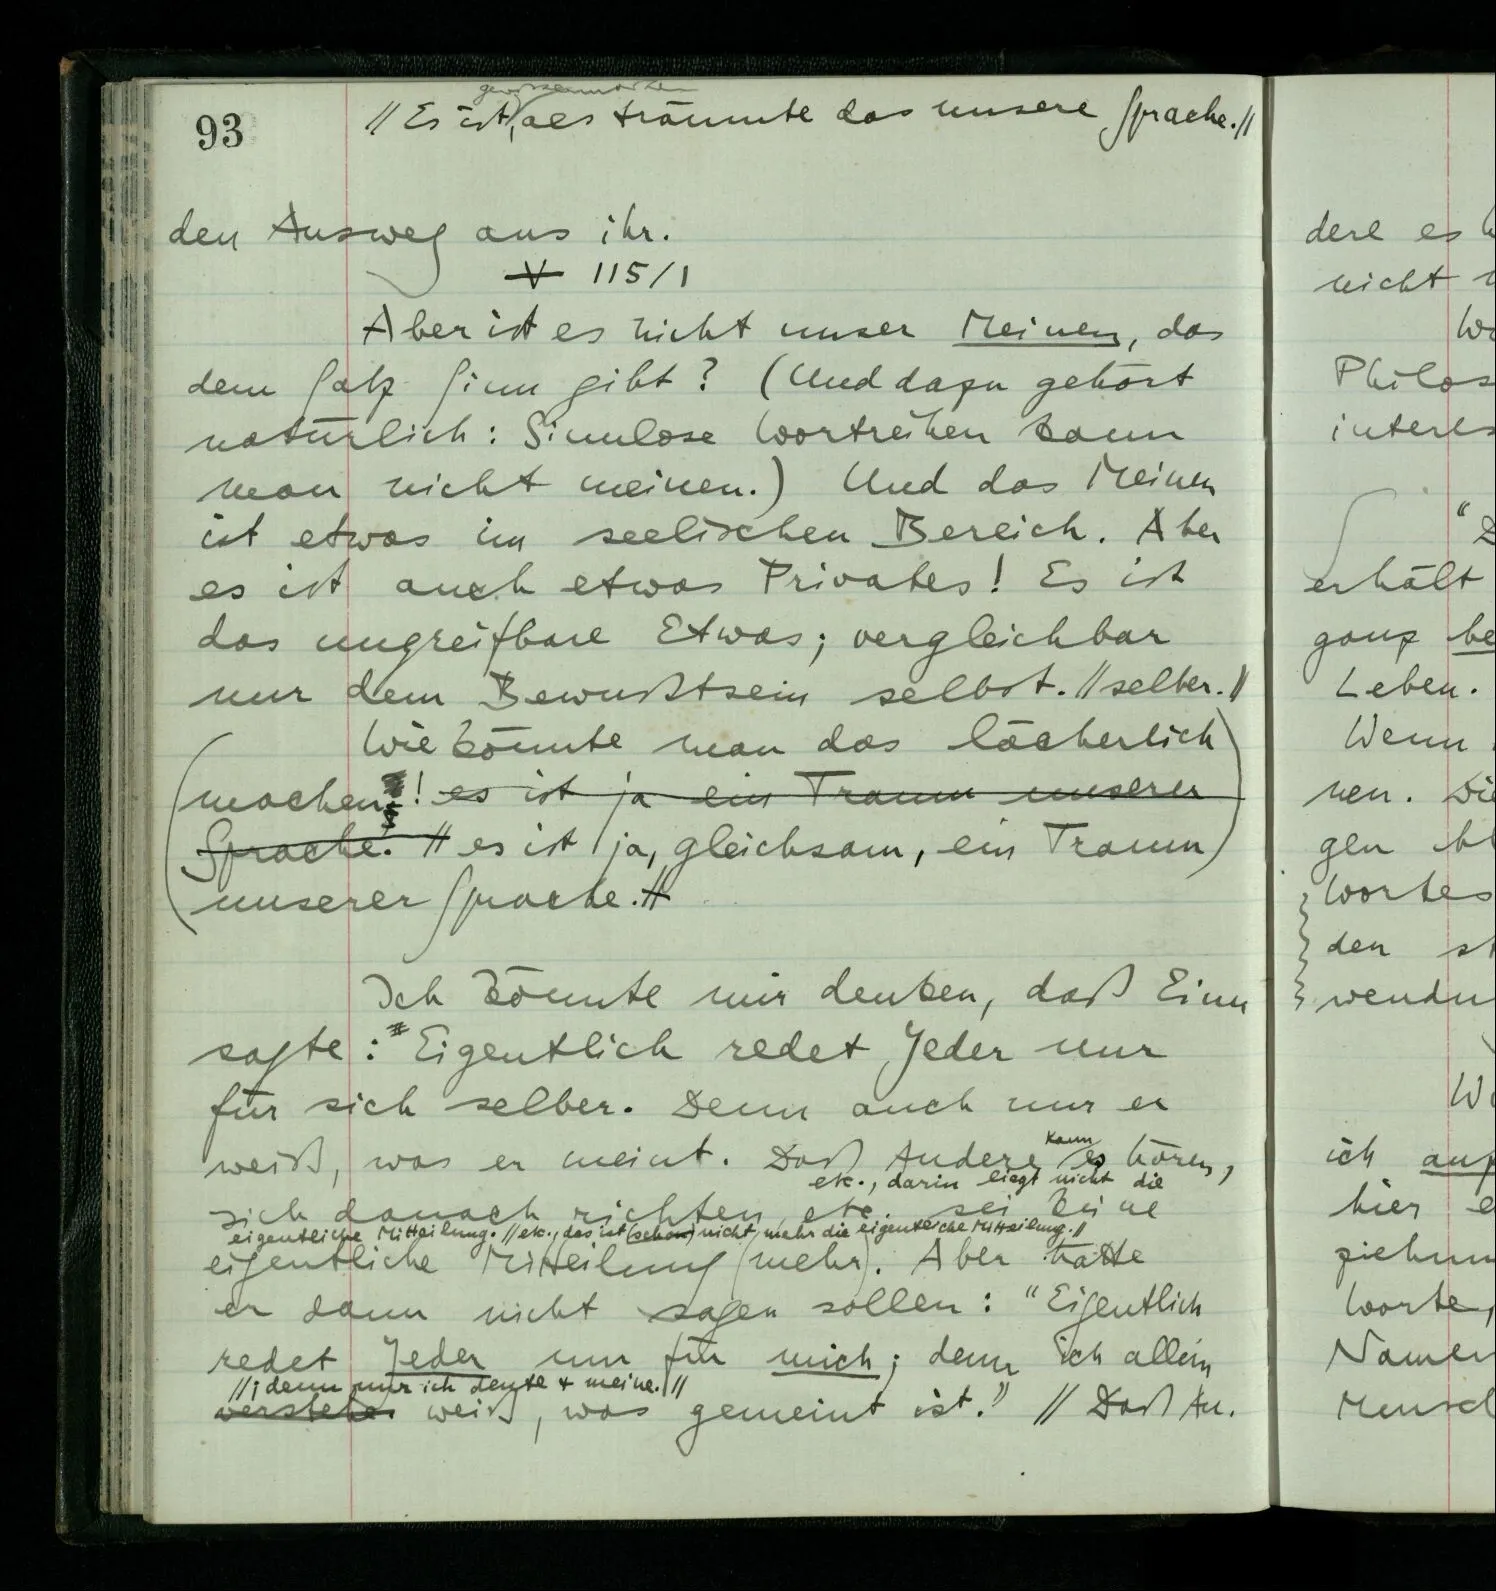 93
gewissermaßen
// Es ist, als träumte das unsere Sprache. //
den Ausweg aus ihr.
V 115/1
Aber ist es nicht unser Meinen, das
dem Satz Sinn gibt? (Und dazu gehört
natürlich: Sinnlose Wortreihen kann
man nicht meinen.) Und das Meinen
ist etwas im seelischen Bereich. Aber
es ist auch etwas Privates! Es ist
das ungreifbare Etwas; vergleichbar
nur dem Bewußtsein selbst. // selber. //
Wie könnte man das lächerlich
machen! es ist ja ein Traum unserer
Sprache. // es ist ja, gleichsam, ein Traum
unserer Sprache. //
Ich könnte mir denken, daß Einer
sagte: "Eigentlich redet Jeder nur
für sich selber. Denn auch nur er
weiß, was er meint. Daß Andere kann es hören,
etc., darin liegt nicht die
sich danach richten etc. sei keine
eigentliche Mitteilung. // etc., das ist (schon) nicht mehr die eigentliche Mitteilung. //
eigentliche Mitteilung (mehr). Aber hätte
er dann nicht sagen sollen: "Eigentlich
redet Jeder nur für mich; denn ich allein
// ; denn nur ich denke + meine. //
verstehe weiß, was gemeint ist." // Daß An-
dere es
nicht
Philos
interes
"D
erhält
ganz be
Leben.
Wenn
nen. Wie
gen
Wortes
den st
wendu
ich
hier e
ziehun
Worte,
Namen
Mensch